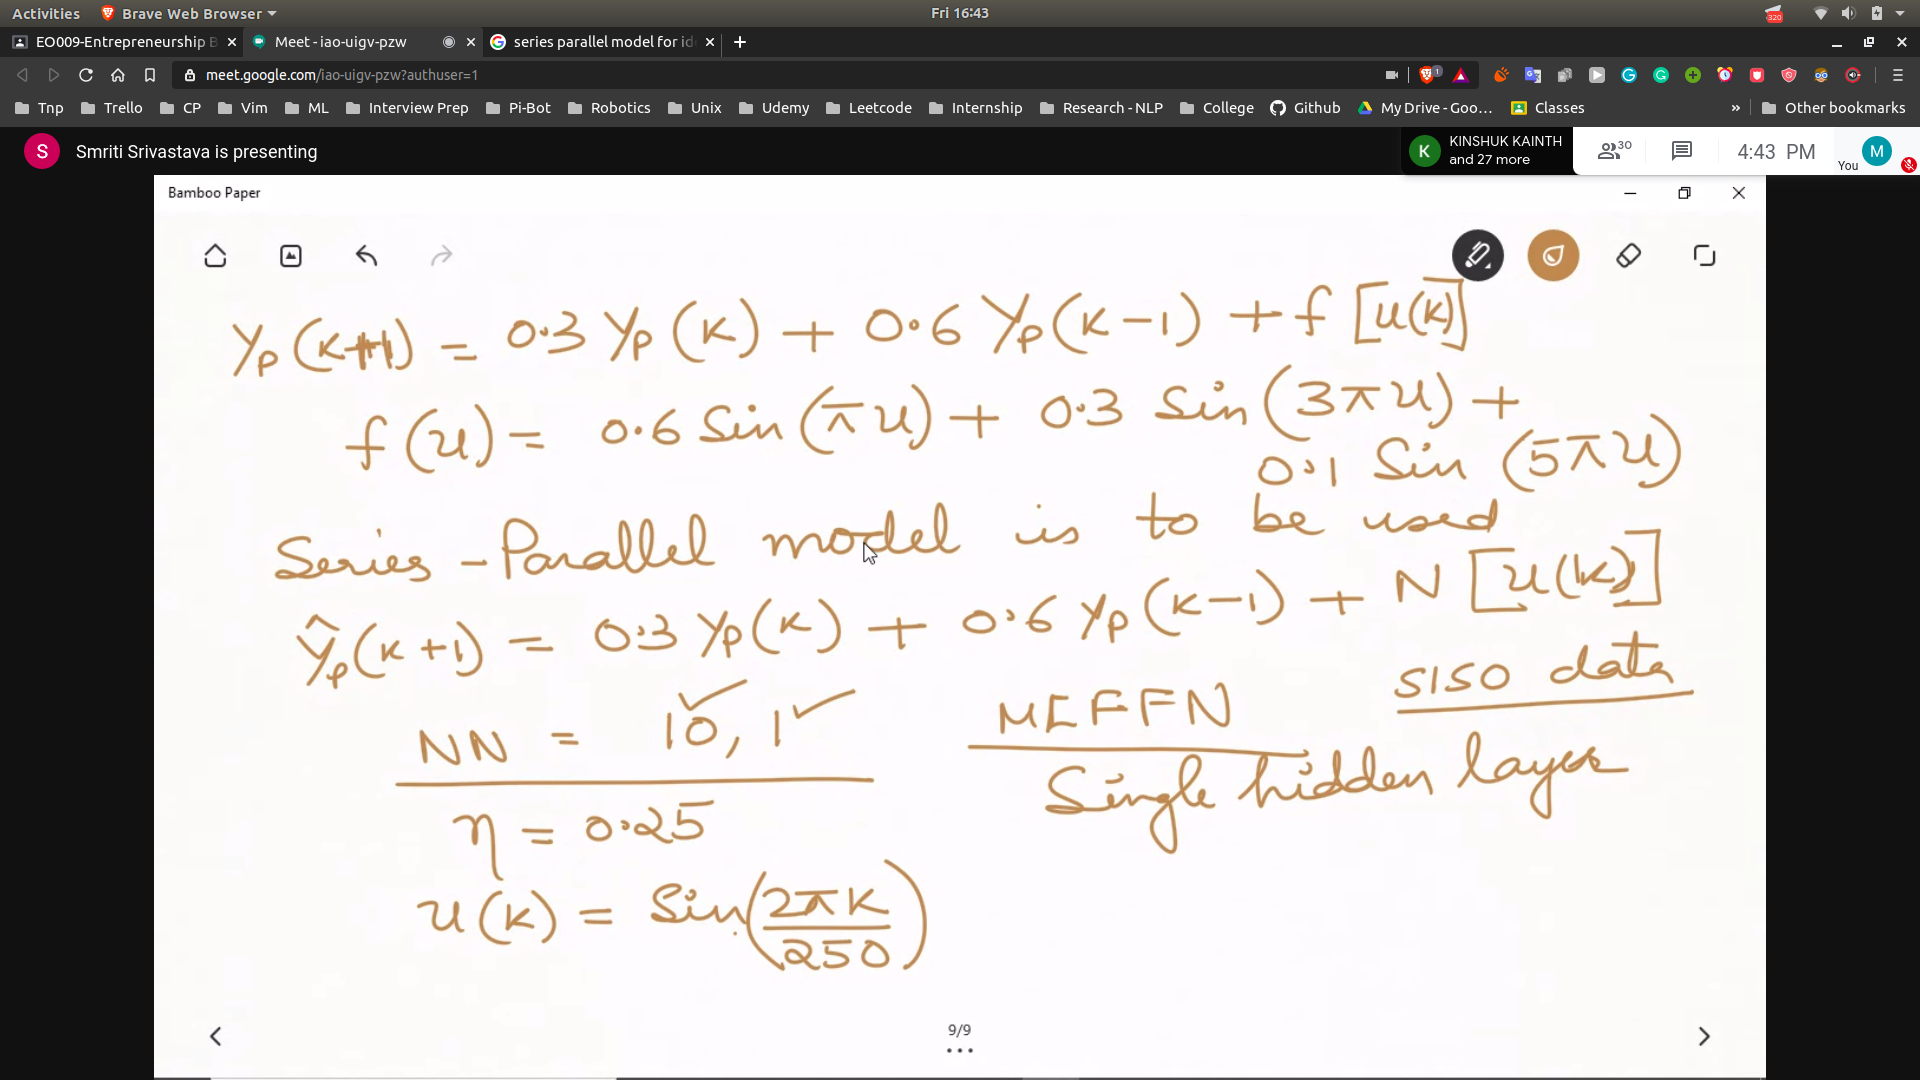 Activities Brave Web Browser Fri 16:43 320
EO009-Entrepreneurship B Meet - iao-uigv-pzw series parallel model for id
meet.google.com/iao-uigv-pzw?authuser=1 1
Tnp Trello CP Vim ML Interview Prep Pi-Bot Robotics Unix Udemy Leetcode Internship Research - NLP College Github My Drive - Goo... Classes » Other bookmarks
S Smriti Srivastava is presenting K KINSHUK KAINTH and 27 more 30 4:43 PM You M
Bamboo Paper
yp(k+1) = 0.3 yp(k) + 0.6 yp(k-1) + f[u(k)]
f(u) = 0.6 Sin(πu) + 0.3 Sin(3πu) +
0.1 Sin(5πu)
Series - Parallel model is to be used
ŷp(k+1) = 0.3 yp(k) + 0.6 yp(k-1) + N[u(k)]
SISO data
NN = 10, 1 MLFFN
Single hidden layer
η = 0.25
u(k) = Sin(2πk/250)
9/9